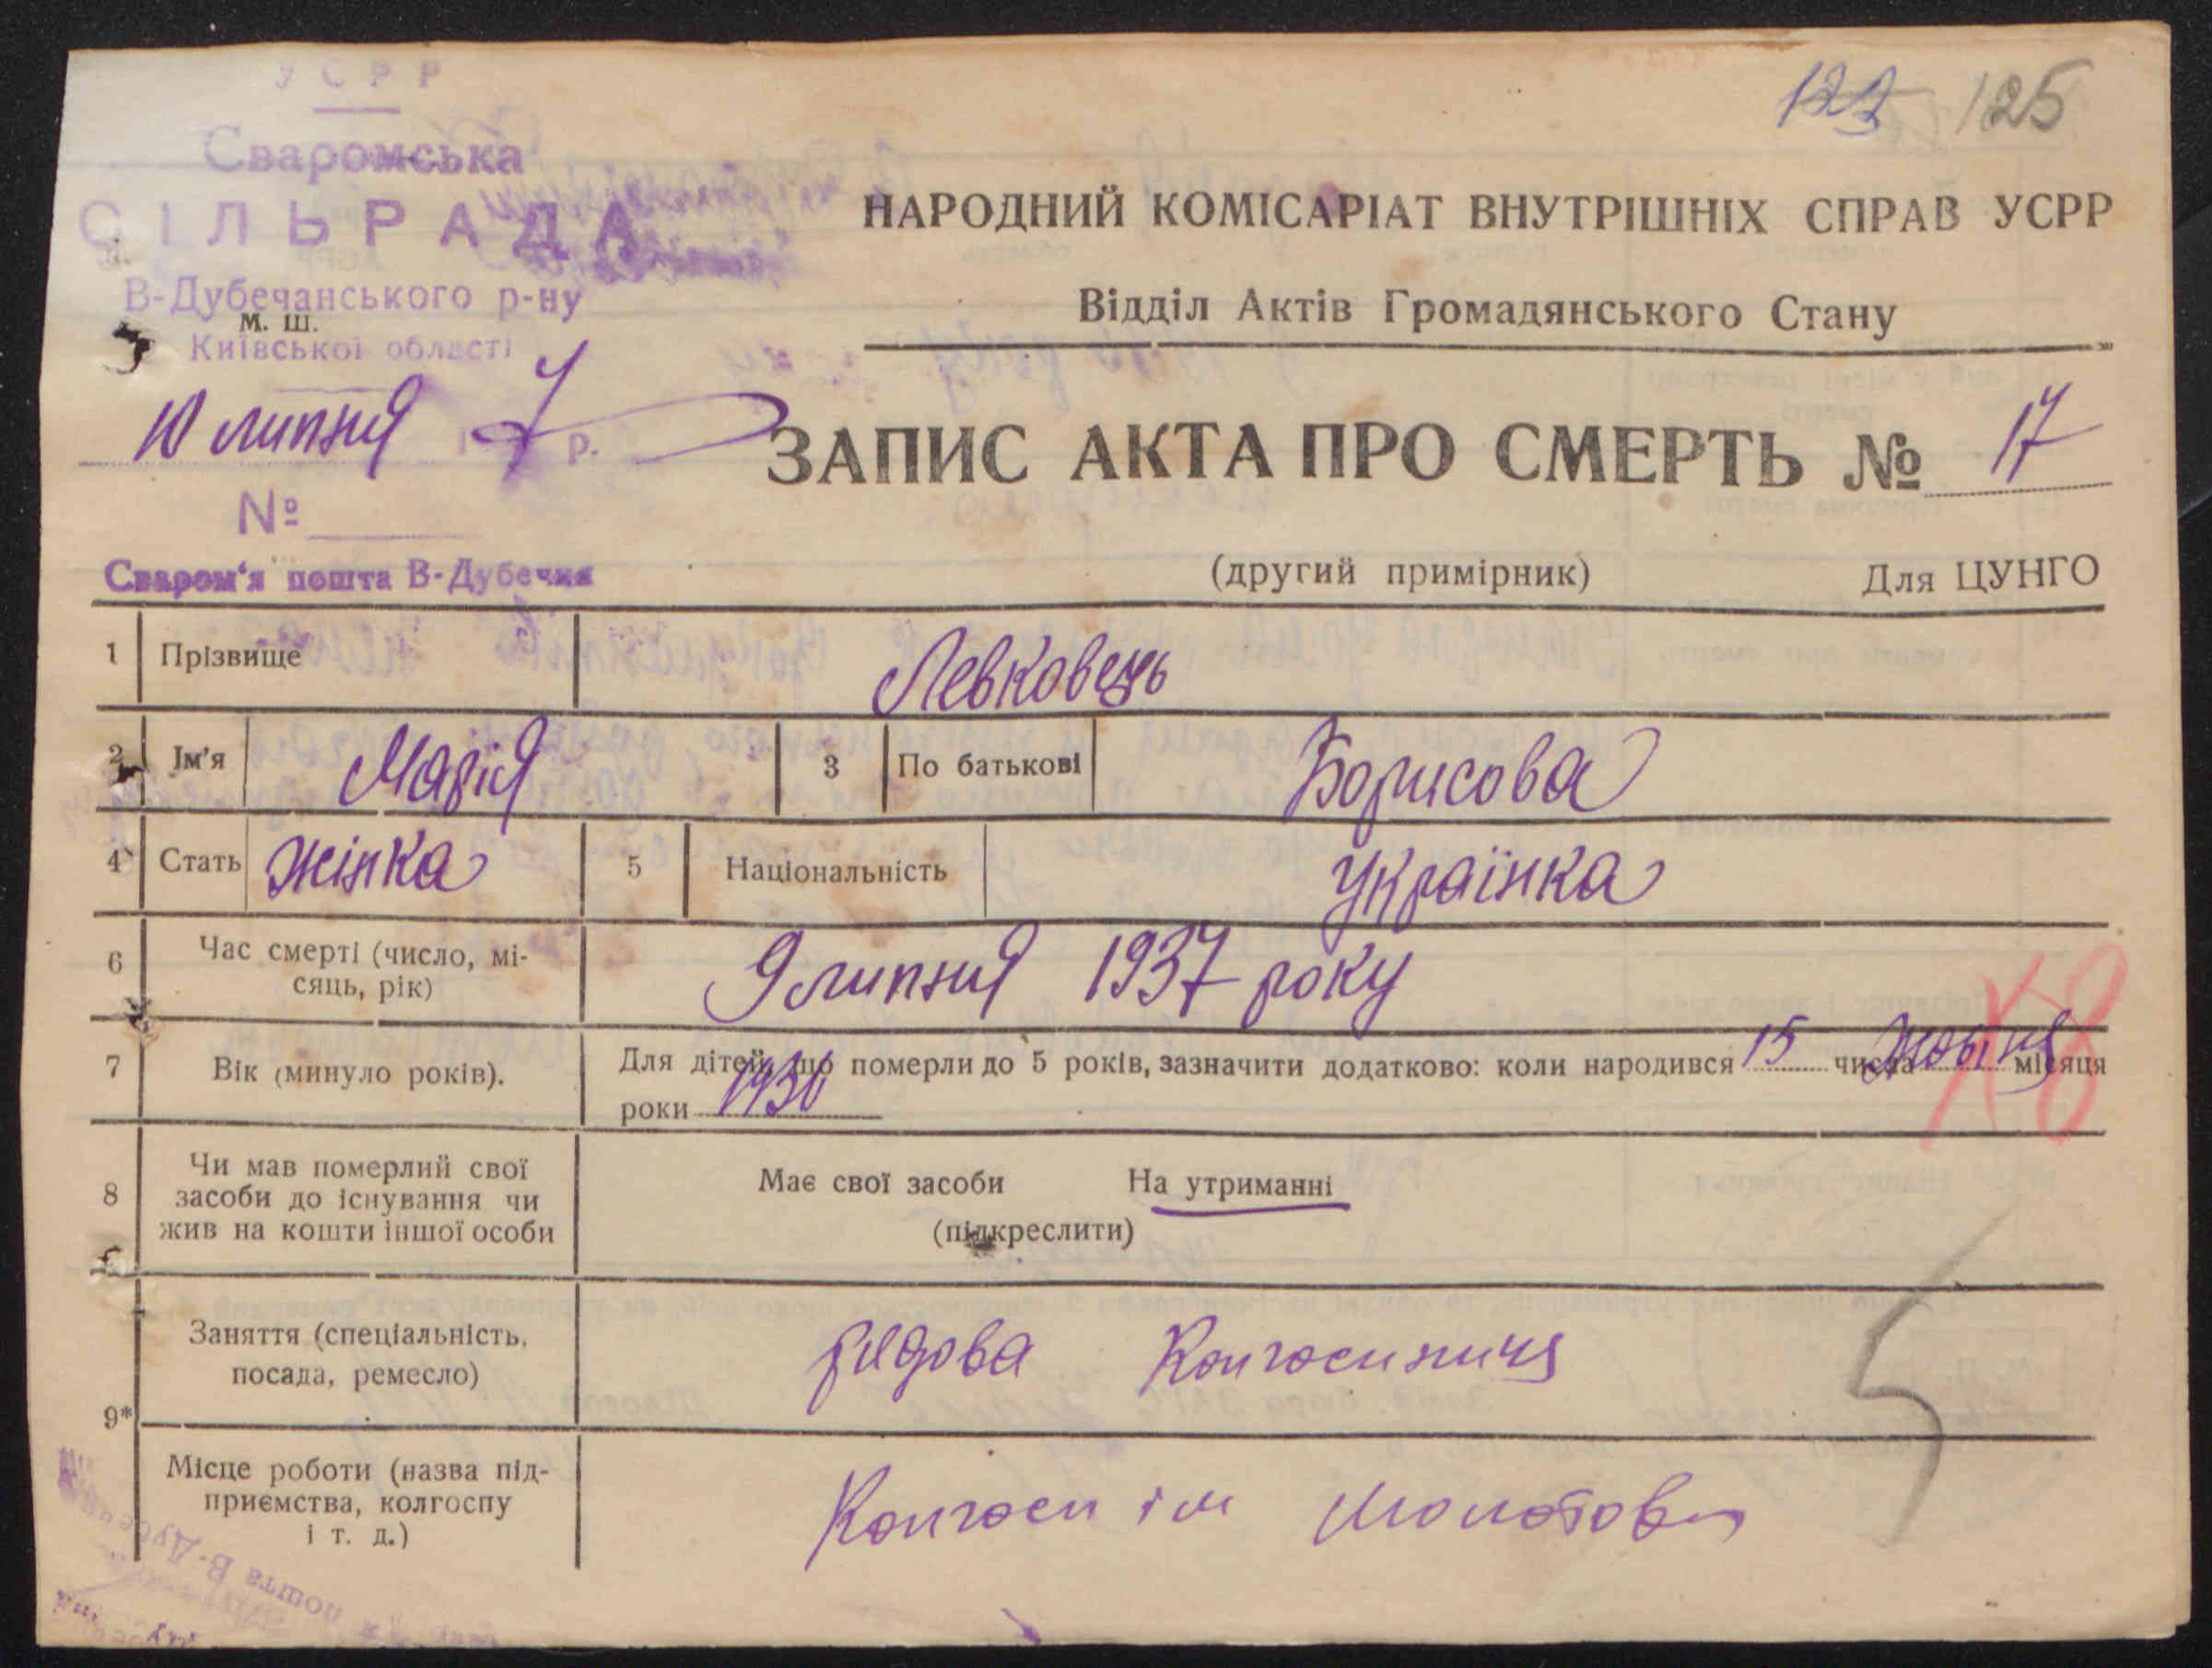 УСРР
122 125
Сваромська
СІЛЬРАДА
В-Дубечанського р-ну
м. ш.
Київської області
10 липня 7 р.
№
Сваром'я пошта В-Дубечня
НАРОДНИЙ КОМІСАРІАТ ВНУТРІШНІХ СПРАВ УСРР
Відділ Актів Громадянського Стану
ЗАПИС АКТА ПРО СМЕРТЬ № 17
(другий примірник) Для ЦУНГО
1 Прізвище Левковець
2 Ім'я Марія 3 По батькові Борисова
4 Стать жінка 5 Національність українка
6 Час смерті (число, мі-
сяць, рік) 9 липня 1937 року
7 Вік (минуло років). Для дітей, що померли до 5 років, зазначити додатково: коли народився 15 числа жовтня місяця
роки 1936
8 Чи мав померлий свої
засоби до існування чи
жив на кошти іншої особи
Має свої засоби На утриманні
(підкреслити)
9* Заняття (спеціальність,
посада, ремесло) рядова Колгоспниця
Місце роботи (назва під-
приємства, колгоспу
і т. д.) Колгосп ім Молотова
5
пошта В-Дубечня